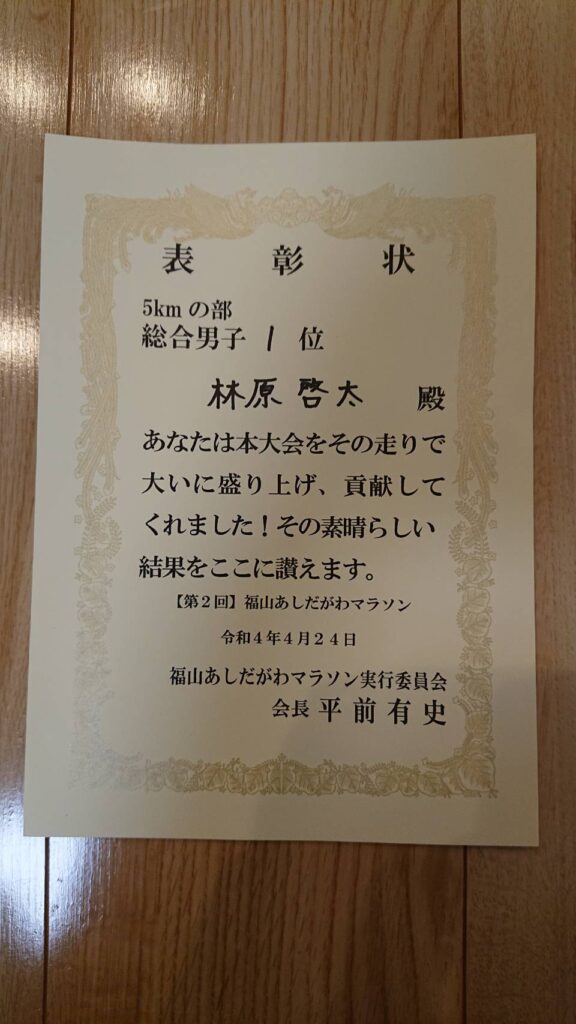 表彰状
5km の部
総合男子 1 位
林原 啓太 殿
あなたは本大会をその走りで
大いに盛り上げ、貢献して
くれました！その素晴らしい
結果をここに讃えます。
【第２回】福山あしだがわマラソン
令和４年４月２４日
福山あしだがわマラソン実行委員会
会長 平前有史